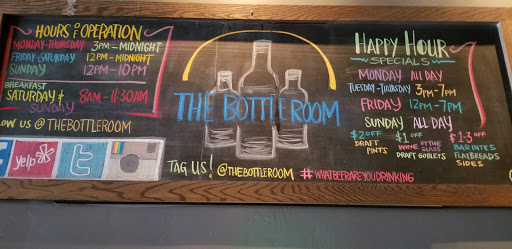 HOURS OF OPERATION
MONDAY-THURSDAY 3PM-MIDNIGHT
FRIDAY-SATURDAY 12PM-MIDNIGHT
SUNDAY 12PM-10PM
BREAKFAST
SATURDAY & SUNDAY 8AM-11:30AM
OW US @ THEBOTTLEROOM
f yelp t
THE BOTTLE ROOM
TAG US! @THEBOTTLEROOM #WHATBEERAREYOUDRINKING
HAPPY HOUR
SPECIALS
MONDAY ALL DAY
TUESDAY-THURSDAY 3PM-7PM
FRIDAY 12PM-7PM
SUNDAY ALL DAY
$2 OFF
DRAFT
PINTS
$1 OFF
WINE BY THE GLASS
DRAFT GOBLETS
$1-3 OFF
BAR BITES
FLATBREADS
SIDES